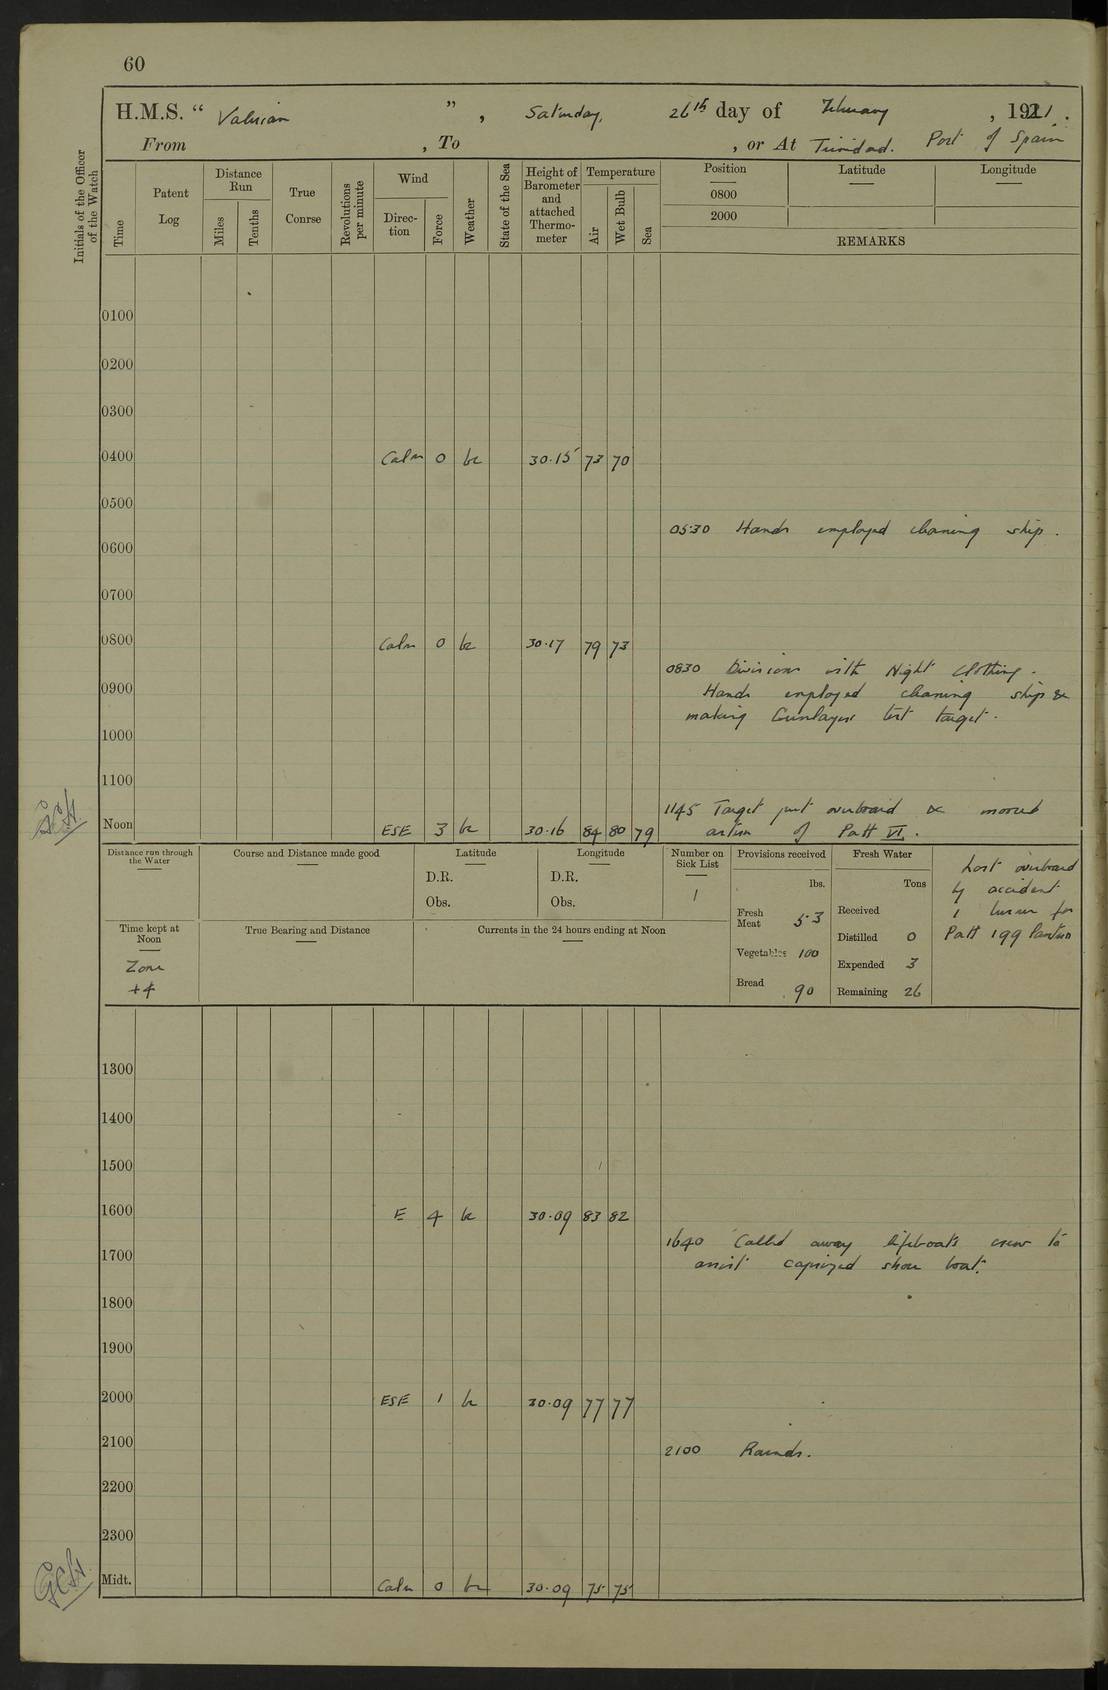 60
H.M.S. “ Valerian ”, Saturday, 26th day of February, 1921.
From , To , or At Trinidad. Port of Spain
Initials of the Officer of the Watch
Time
Patent Log
Distance Run
Miles
Tenths
True Conrse
Revolutions per minute
Wind
Direction
Force
Weather
State of the Sea
Height of Barometer and attached Thermometer
Temperature
Air
Wet Bulb
Sea
Position Latitude Longitude
0800
2000
REMARKS
0100
0200
0300
0400 Calm 0 bc 30.15 73 70
0500
0530 Hands employed cleaning ship.
0600
0700
0800 Calm 0 bc 30.17 79 73
0830 Divisions with Night Clothing.
0900 Hands employed cleaning ship &
making Gunlayers test target.
1000
1100
1145 Target put overboard & moored
Noon ESE 3 bc 30.16 84 80 79 astern of Patt VI.
Distance run through the Water
Course and Distance made good
Latitude
D.R.
Obs.
Longitude
D.R.
Obs.
Number on Sick List
1
Provisions received
lbs.
Fresh Meat 53
Vegetables 100
Bread 90
Fresh Water
Tons
Received
Distilled 0
Expended 3
Remaining 26
Lost overboard
by accident
1 burner for
Patt 199 lantern
Time kept at Noon
Zone
+4
True Bearing and Distance
Currents in the 24 hours ending at Noon
1300
1400
1500
1600 E 4 bc 30.09 83 82
1640 Called away lifeboats crew to
1700 assist capsized shore boat.
1800
1900
2000 ESE 1 bc 30.09 77 77
2100 2100 Rounds.
2200
2300
Midt. Calm 0 bc 30.09 75 75